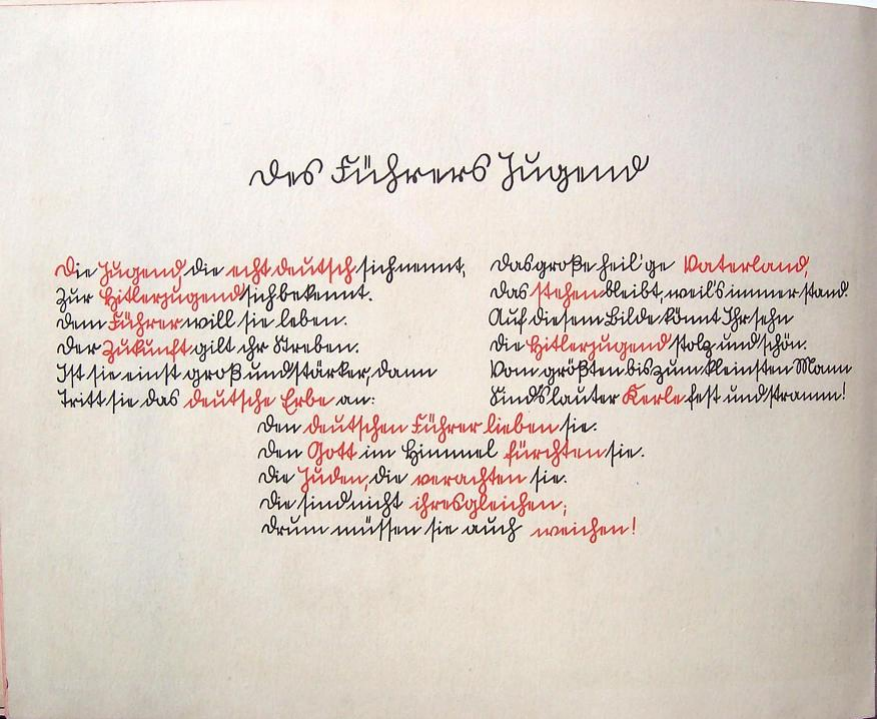 Des Führers Jugend
Die Jugend, die echt deutsch sich nennt,
Zur Hitlerjugend sich bekennt.
Dem Führer will sie leben.
Der Zukunft gilt ihr Streben.
Ist sie einst groß und stärker, dann
Tritt sie das deutsche Erbe an:
Das große heil'ge Vaterland,
Das stehen bleibt, weil's immer stand.
Auf diesem Bilde könnt Ihr sehn
Die Hitlerjugend stolz und schön.
Vom größten bis zum kleinsten Mann
Sind's lauter Kerle fest und stramm!
Den deutschen Führer lieben sie.
Den Gott im Himmel fürchten sie.
Die Juden, die verachten sie.
Die sind nicht ihresgleichen;
Drum müssen sie auch weichen!